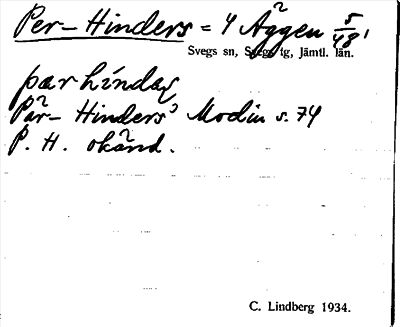 Per- Hinders = 4 Äggen 5/48¹
Svegs sn, Svegs tg, Jämtl. län.
pær hindaṣ
Pär- Hinders' Modin s. 74
P. H. okänd.
C. Lindberg 1934.